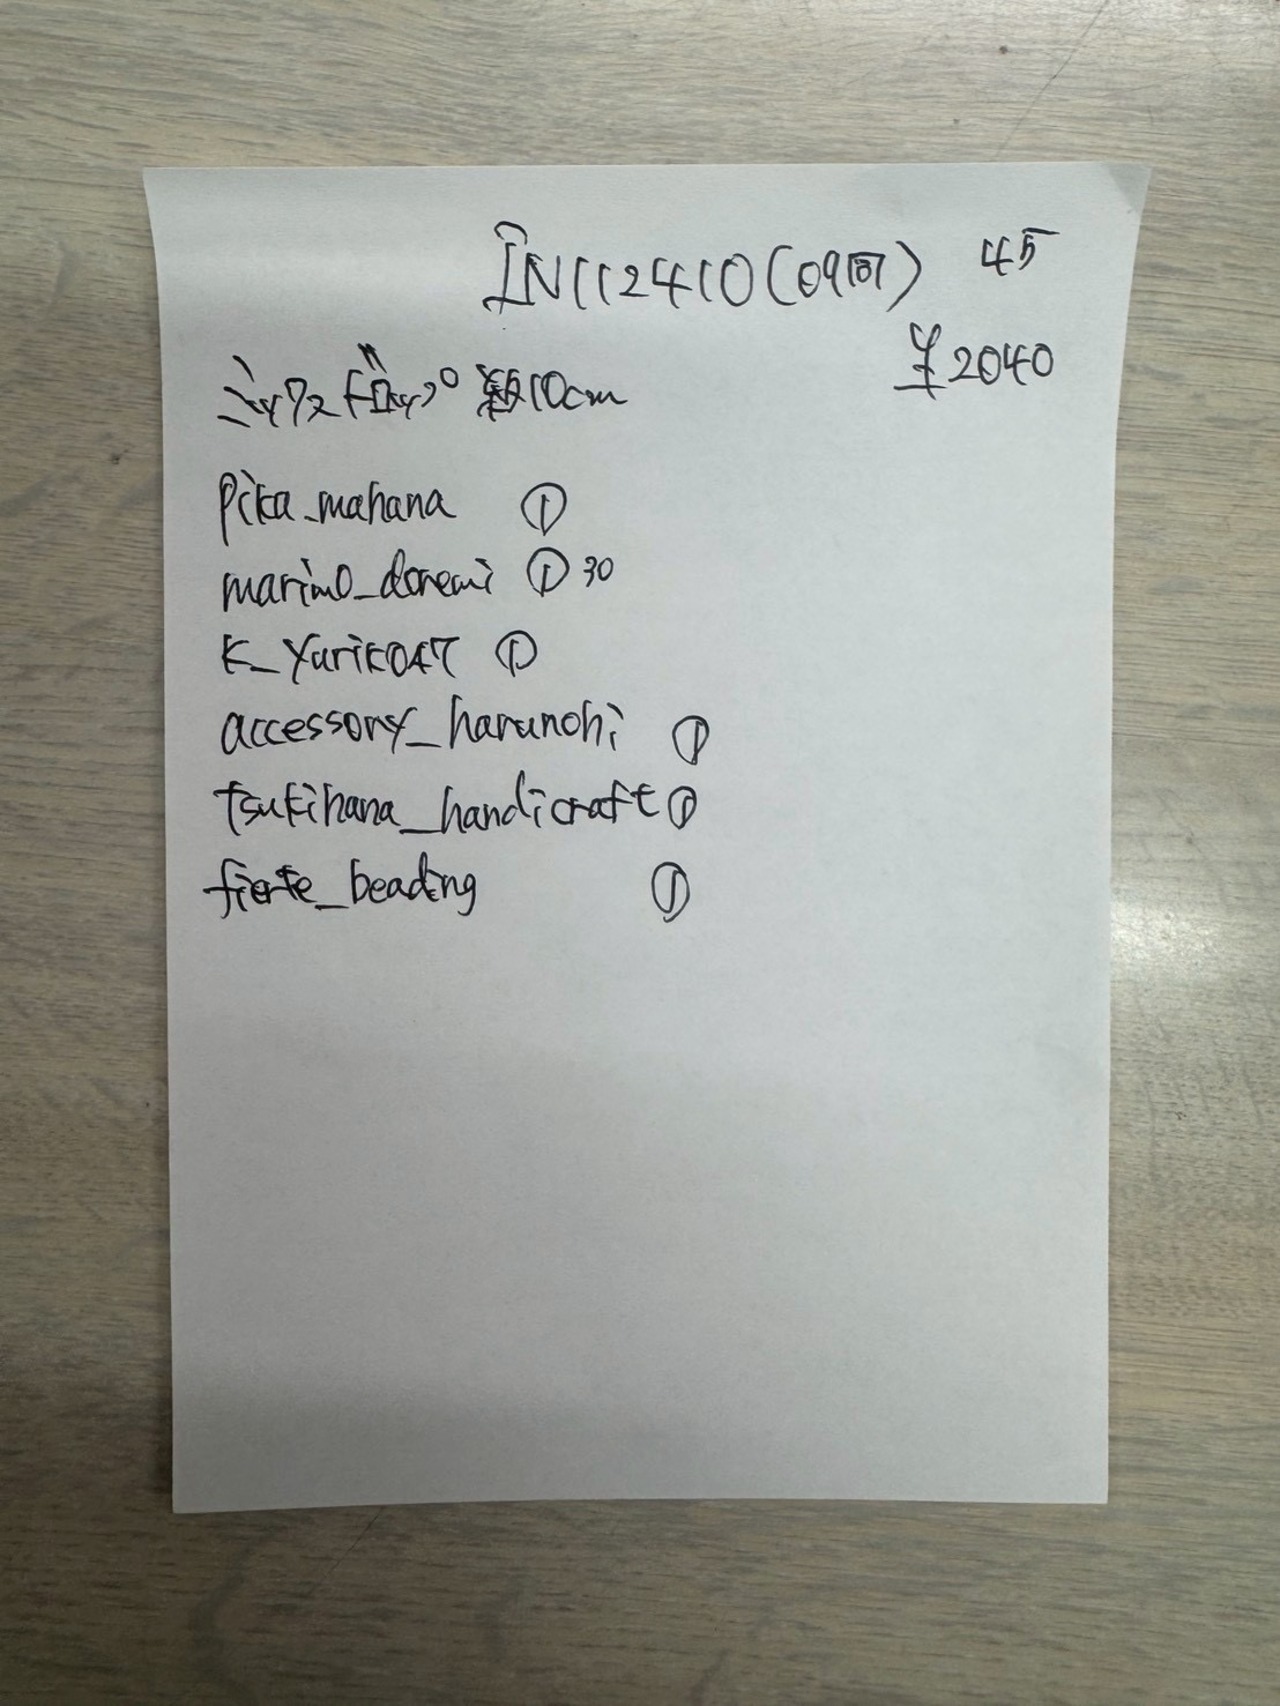 IN112410(09回) 45
¥2040
ミックスドロップ 約10cm
pika_mahana ①
marimo_doremi ① 30
K_Yuriko47 ①
accessory_harunohi ①
tsukihana_handicraft ①
fierte_beading ①